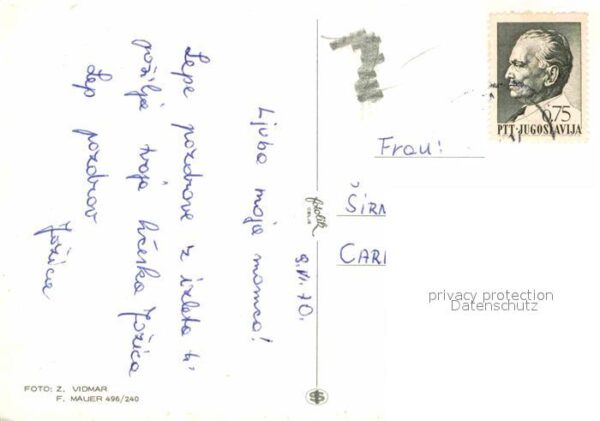 9. VI. 70.
Ljuba moja mamca!
Lepe pozdrave z izleta ti
pošilja tvoja hčerka Jožica
Lep pozdrav
Jožica
0.75
PTT·JUGOSLAVIJA
Frau:
ŠIRN
CARI
privacy protection
Datenschutz
FOTO: Z. VIDMAR
F. MAUER 496/240